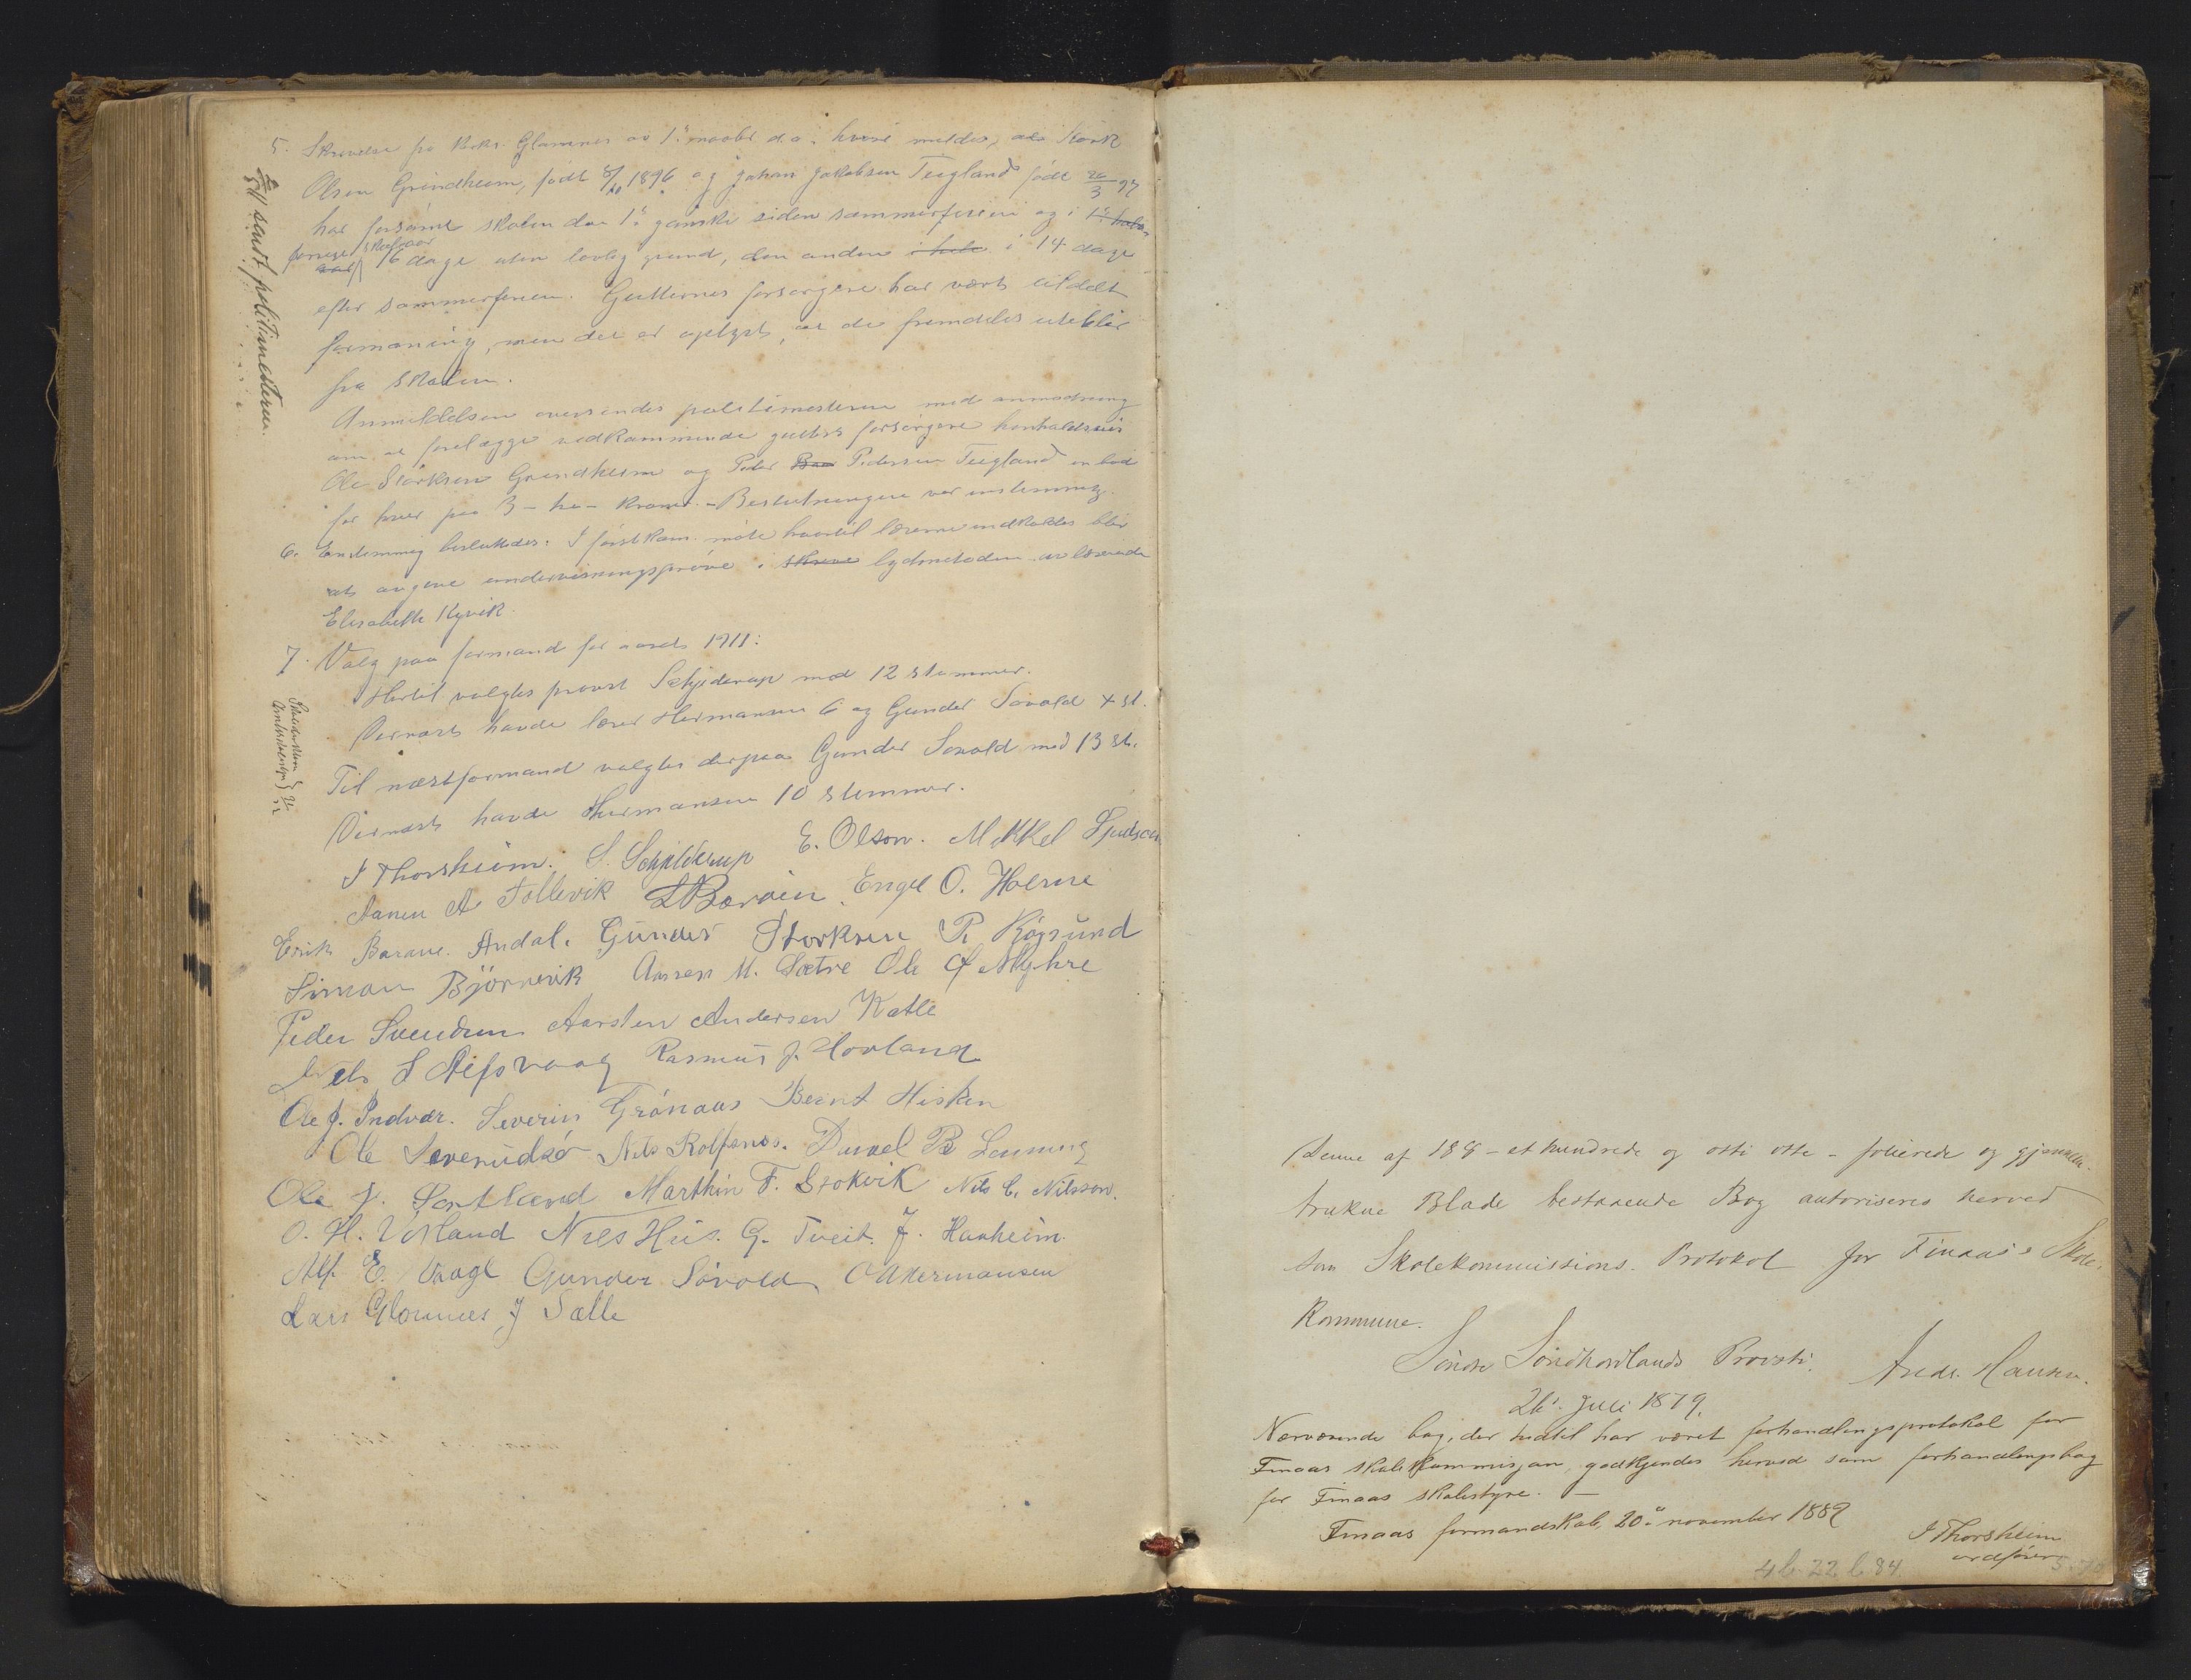 5. Skrivelse fra Kirks. Glomnes av 1ste novbr d.a. hvori meldes, at Størk
Olsen Grindheim, født 8/10 1896 og Johan Jakobsen Teigland født 26/3 97
har forsømt skolen den 1ste ganske siden sommerferien og i
forrige skoleaar 16 dage uten lovlig grund, den anden i hele i 14 dage
efter sommerferien. Gutternes forsørgere har vært tildelt
formaning, men det er oplyst, at de fremdeles uteblir
fra skolen.
Anmeldelsen oversendes politimesteren med anmodning
om at forelægge vedkommende gutters forsørgere henholdsvis
Ole Størksen Grindheim og Peder Pedersen Teigland en bod
for hver paa 3 - tre - kroner. - Beslutningen var enstemmig.
6. Enstemmig besluttedes: I først kom. møte hvortil lærerne indkaldes blir
at avgive undervisningsprøve i skrive lydmetoden av lærerinde
Elisabeth Kyvik.
7. Valg paa formand for aaret 1911:
Hertil valgtes provst Schjelderup med 12 stemmer.
Dernæst havde lærer Hermansen 6 og Gunder Søvold 4 st.
Til næstformand valgtes derpaa Gunder Søvold med 13 st.
Dernæst havde Hermansen 10 stemmer.
Ell sendt politimesteren.
Skoledirektøren
Amtsskolestyre
J Thorsheim. S. Schjelderup E. Olson. Mikkel Sjursen
Aanen A Tollevik L Børøen. Engel O. Holme
Erik Barane. Andal. Gunder Størksen R Køgsund
Simon Bjørnevik Aanen M. Sætre Ole O Myhre
Peder Svendsen Aarsten Andersen Katle
Nels S Aefsvaag Rasmus J. Hovland
Ole J. Indvær. Severin Grönaas Bernt Hisken
Ole Severudsø Nils Rolfsnes. Daniel B Lønning
Ole J. Sortland Marthin F. Stokvik Nils C. Nilsson.
O. H. Vorland Nils Hus. G. Tveit. J. Hanheim.
Alf E. Vaage Gunder Søvold O Hermansen
Lars Glomnes J Sælle
Denne af 188 - et hundrede og otti otte - folierede og gjennem-
trukne Blade bestaaende Bog autoriseres herved
som Skolekommissions-Protokol for Finaas Skole-
kommune.
Söndre Söndhordlands Provsti.
26'. Juli 1879.
Andr. Hansen.
Nærværende bog, der hidtil har været forhandlingsprotokol for
Finaas skolekommisjon, godkjendes herved som forhandlingsbog
for Finaas skolestyre. -
Finaas formandskab, 20de november 1889
J Thorsheim
ordfører
4 b. 22 b. 84